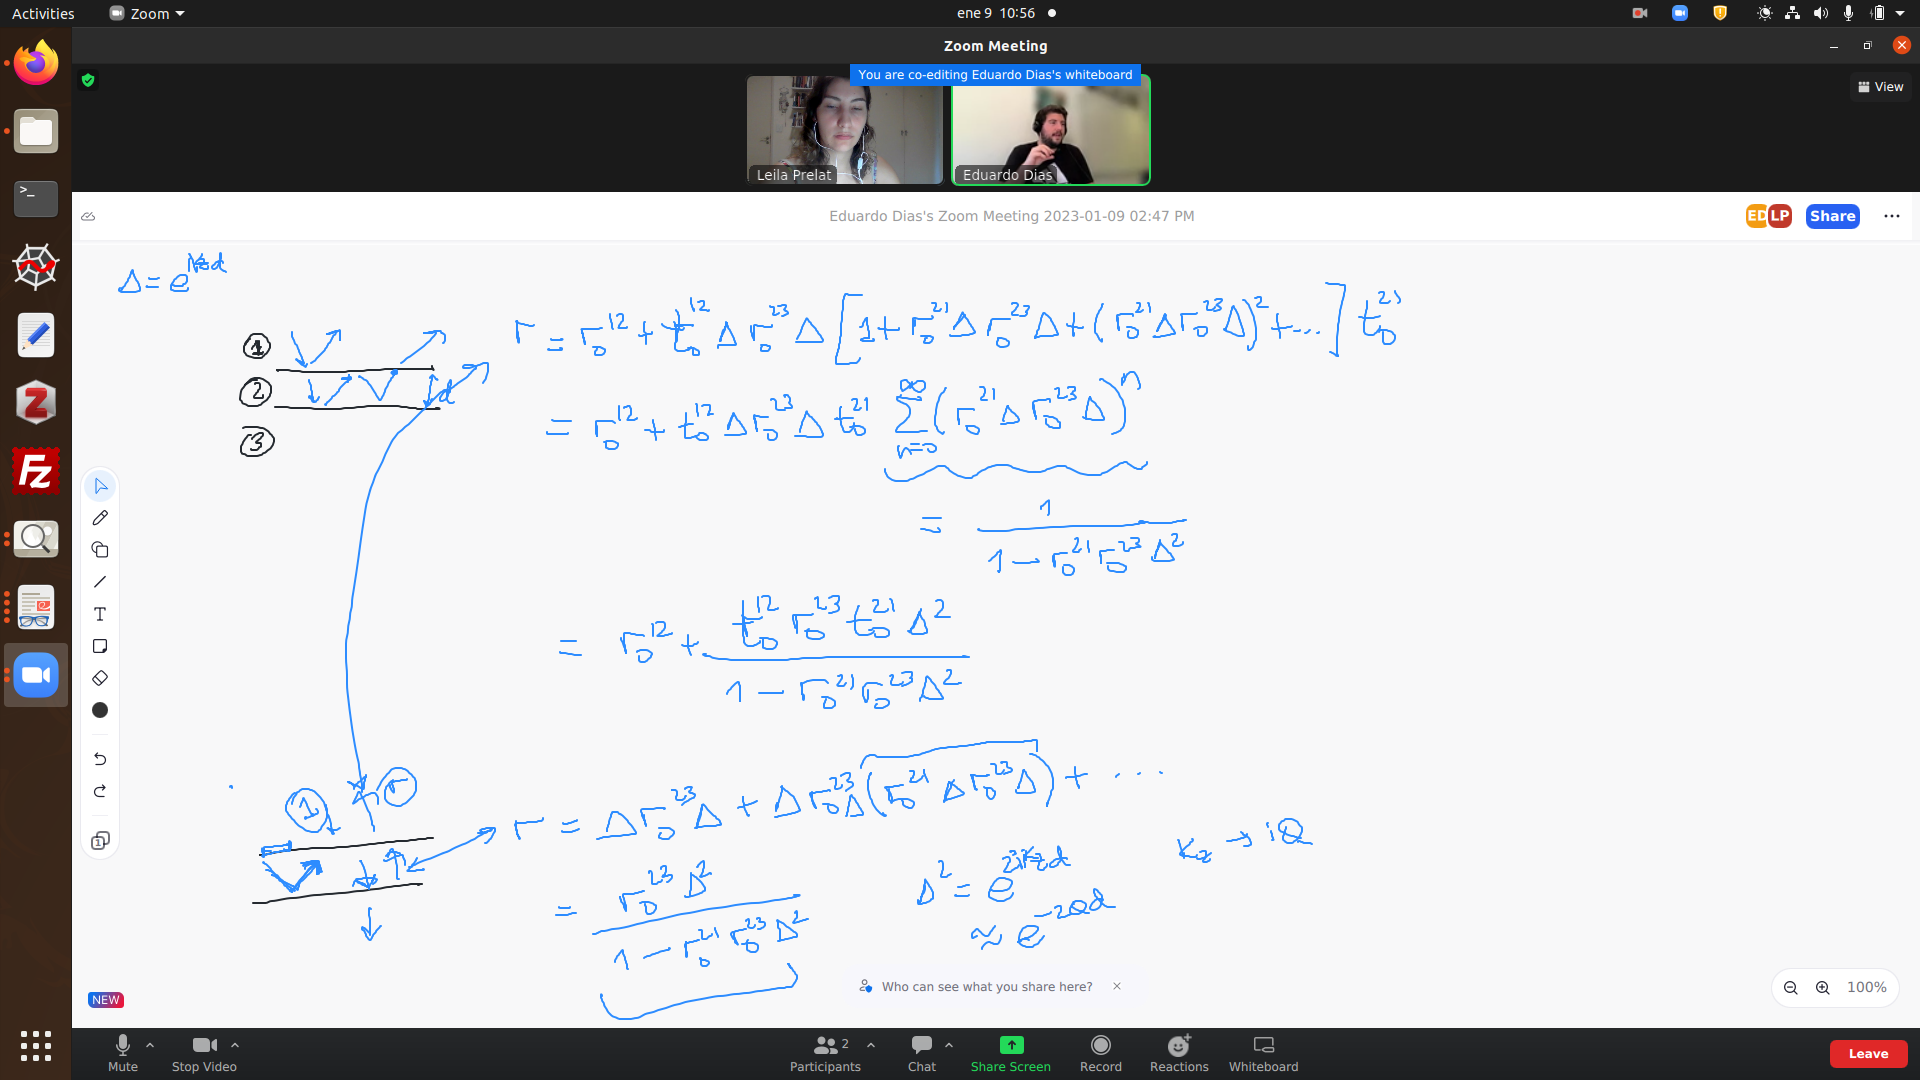 Activities Zoom ene 9 10:56
Zoom Meeting
You are co-editing Eduardo Dias's whiteboard
View
Leila Prelat Eduardo Dias
Eduardo Dias's Zoom Meeting 2023-01-09 02:47 PM
ED LP Share
Δ = e^{ik_z d}
r = r_0^{12} + t_0^{12} Δ r_0^{23} Δ [1 + r_0^{21} Δ r_0^{23} Δ + (r_0^{21} Δ r_0^{23} Δ)^2 + ...] t_0^{21}
1
2
d
3
= r_0^{12} + t_0^{12} Δ r_0^{23} Δ t_0^{21} Σ_{n=0}^{∞} (r_0^{21} Δ r_0^{23} Δ)^n
= 1 / (1 - r_0^{21} r_0^{23} Δ^2)
= r_0^{12} + t_0^{12} r_0^{23} t_0^{21} Δ^2 / (1 - r_0^{21} r_0^{23} Δ^2)
1 r
r = Δ r_0^{23} Δ + Δ r_0^{23} Δ (r_0^{21} Δ r_0^{23} Δ) + ...
k_z → iQ
= r_0^{23} Δ^2 / (1 - r_0^{21} r_0^{23} Δ^2)
Δ^2 = e^{2ik_z d}
≈ e^{-2Qd}
Who can see what you share here?
NEW
100%
Mute Stop Video Participants 2 Chat Share Screen Record Reactions Whiteboard Leave